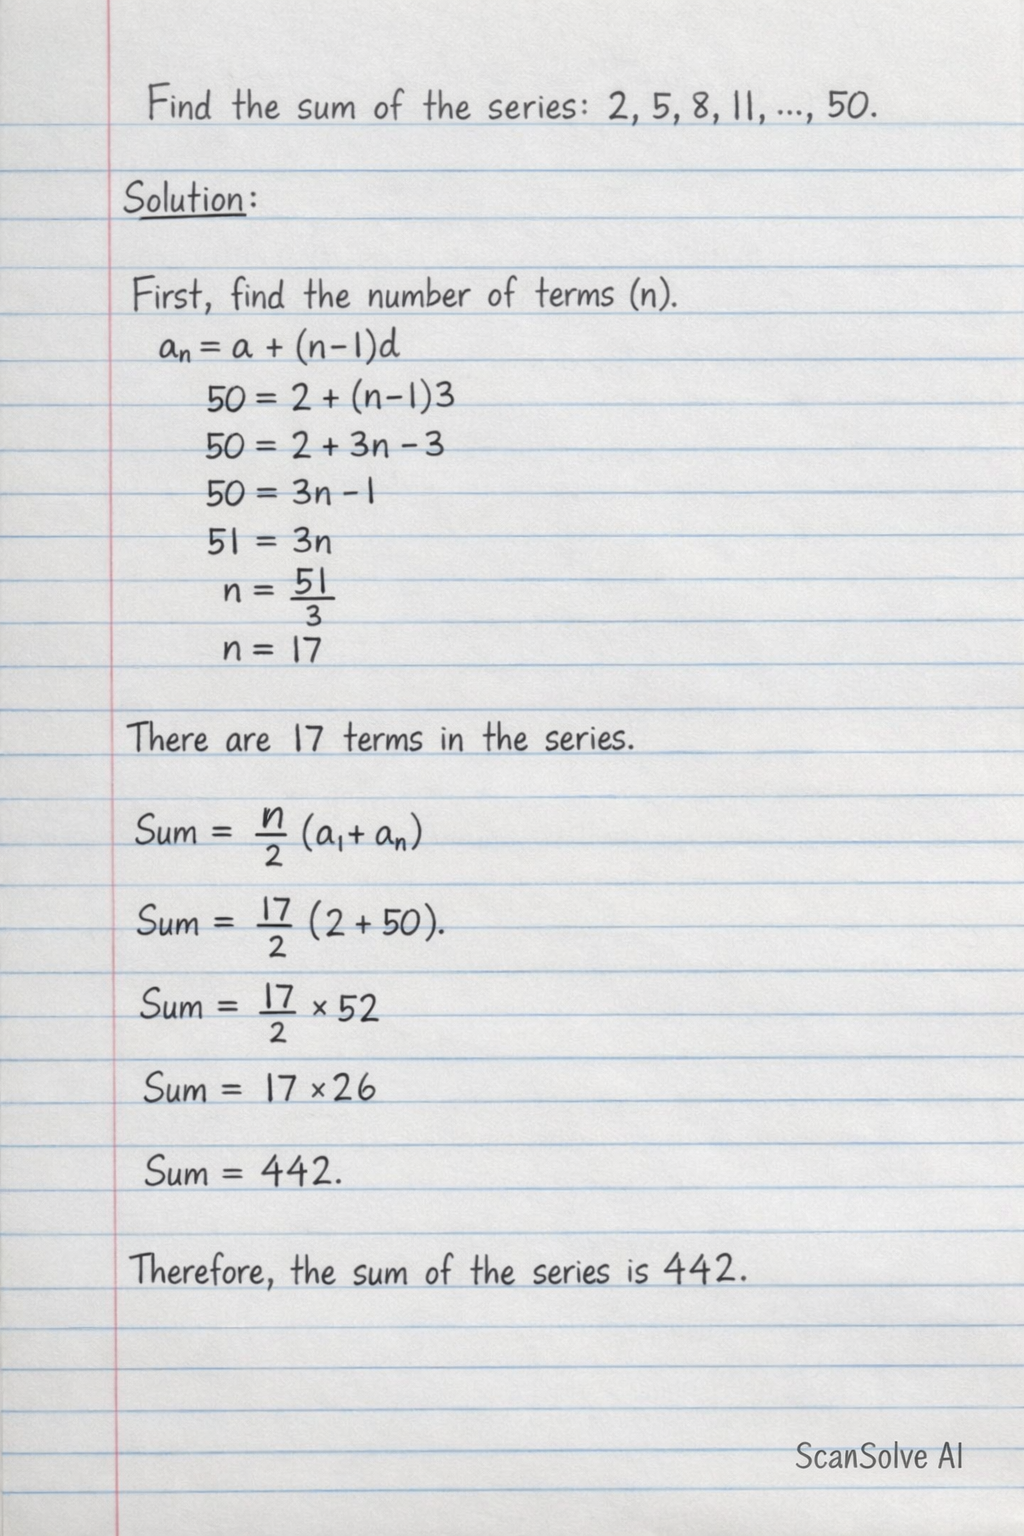 Find the sum of the series: 2, 5, 8, 11, ..., 50.
Solution:
First, find the number of terms (n).
aₙ = a + (n-1)d
50 = 2 + (n-1)3
50 = 2 + 3n - 3
50 = 3n - 1
51 = 3n
n = 51/3
n = 17
There are 17 terms in the series.
Sum = n/2 (a₁ + aₙ)
Sum = 17/2 (2 + 50).
Sum = 17/2 × 52
Sum = 17 × 26
Sum = 442.
Therefore, the sum of the series is 442.
ScanSolve AI